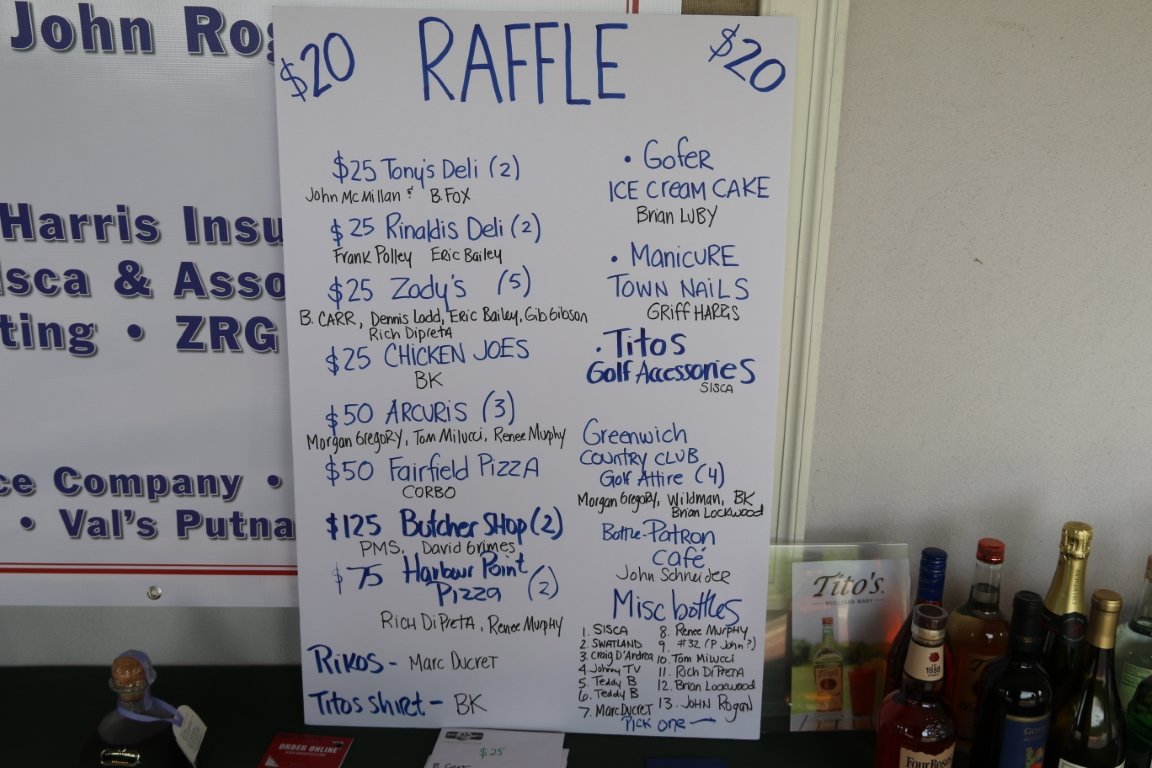 John Rog
Harris Insu
isca & Asso
ting • ZRG
ce Company •
• Val's Putna
$20 RAFFLE $20
$25 Tony's Deli (2)
John McMillan & B. FOX
$25 Rinaldis Deli (2)
Frank Polley Eric Bailey
$25 Zody's (5)
B. CARR, Dennis Ladd, Eric Bailey, Gib Gibson
Rich Dipreta
$25 CHICKEN JOES
BK
$50 ARCURIS (3)
Morgan Gregory, Tom Milucci, Renee Murphy
$50 Fairfield PIZZA
CORBO
$125 Butcher SHop (2)
PMS, David Grimes
$75 Harbour Point
Pizza (2)
RICH DiPRETA, Renee MURPHY
Rikos - Marc Ducret
Titos shirt - BK
• Gofer
ICE cream CAKE
Brian LUBY
• MANiCURE
TOWN NAiLS
GRIFF HARRIS
• Titos
Golf Accessories
SISCA
Greenwich
COUNTRY CLUB
Golf Attire (4)
Morgan Gregory, Wildman, BK
Brian Lockwood
Bottle-Patron
café
John Schneider
Misc bottles
1. SISCA
2. SWATLAND
3. Craig D'Andrea
4. Johnny TV
5. Teddy B
6. Teddy B
7. Marc Ducret
8. Renee MURPHY
9. #32 (P John?)
10. Tom Milucci
11. Rich DiPreta
12. Brian Lockwood
13. JOHN Rogan
Pick one
Tito's
ORDER ONLINE
$25
1888
Four Roses